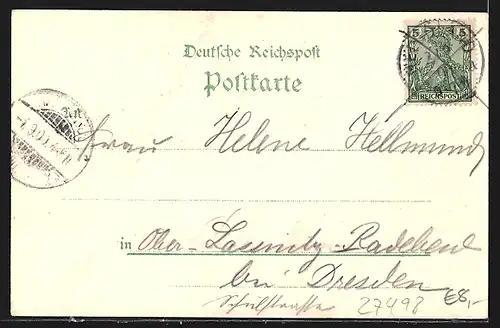 5 5
REICHSPOST
Deutsche Reichspost
Postkarte
Frau Helene Hellmund
in Ober-Lössnitz-Radebeul
bei Dresden
Schulstrasse 27498 €8,-